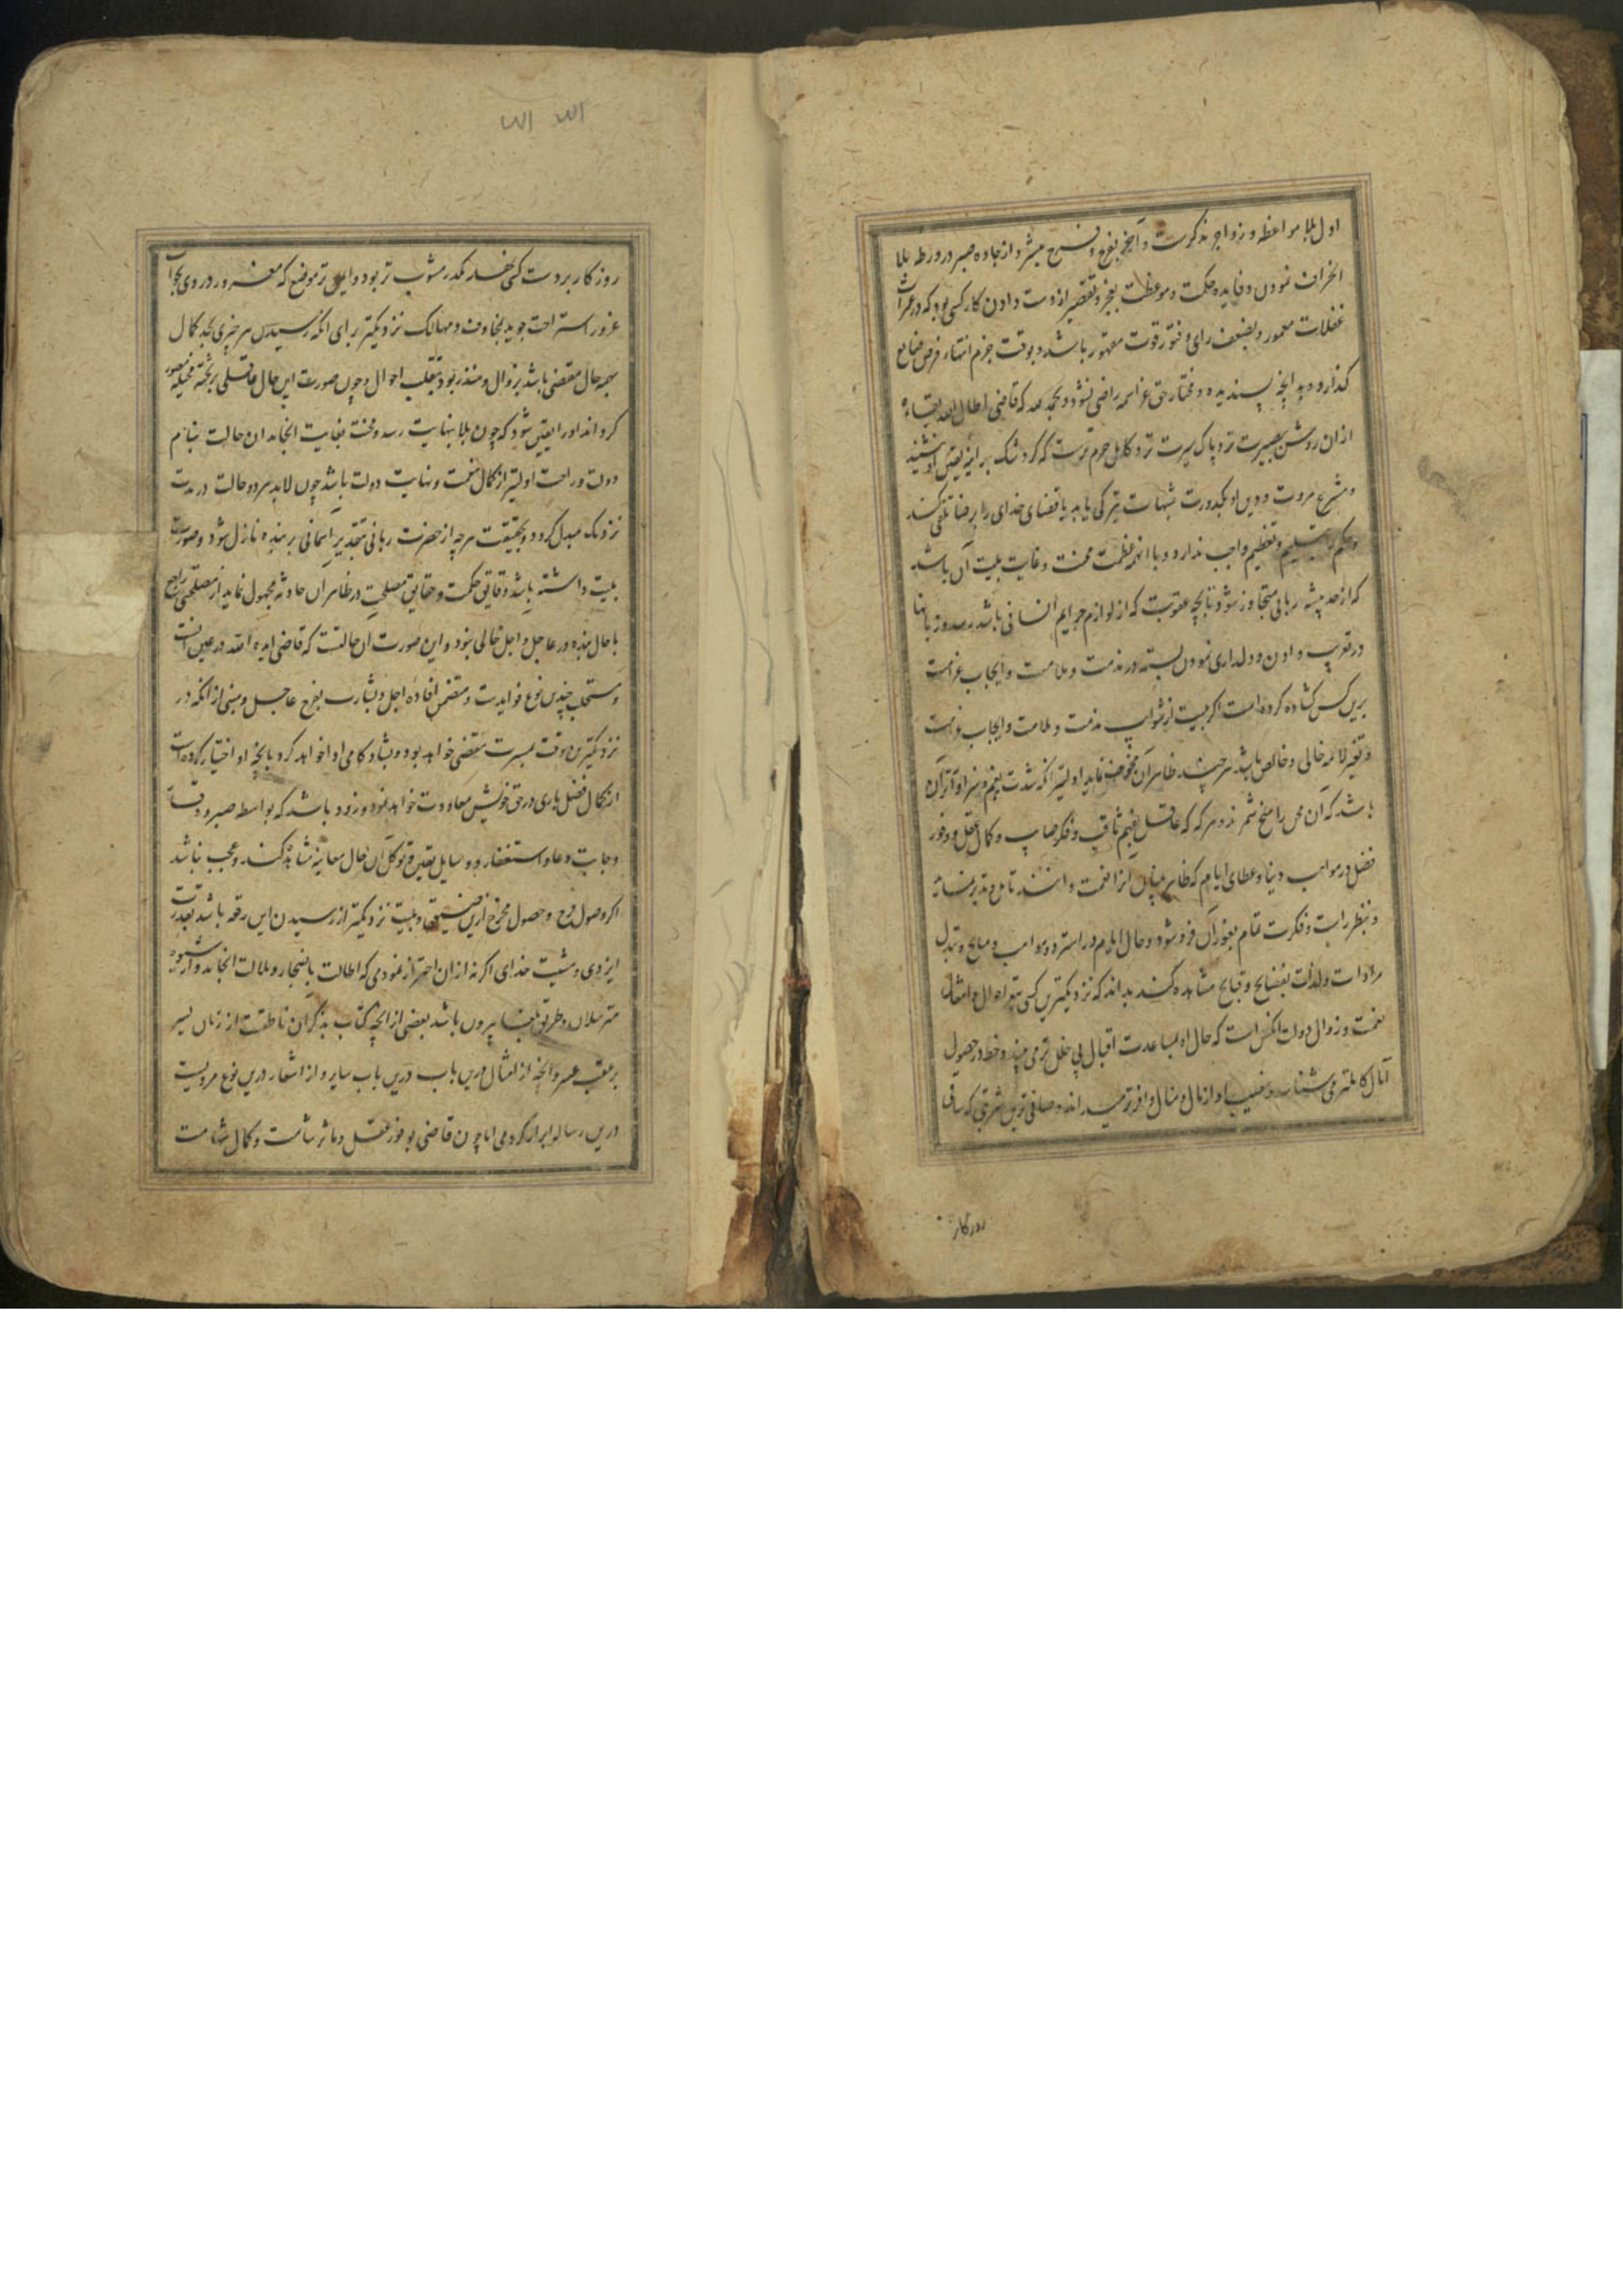 اول بلا مواعظ و زواجر مذکرست و آخر بفرج و مبشر و از جاده صبر در ورطه بلا
انحراف نمودن و فایده حکمت و موعظت بعجز و تقصیر از دست دادن کار کسی بود که در غمرات
غفلات مغمور و بضعف رای و فتور قوت مقهور باشد و بوقت حزم انتهاء فرص ضایع
گذارد و بد انچه پسندیده و مختار حق عز اسمه راضی نشود و بحمد الله که قاضی اطال الله بقاءه
ازان روشن بصیرت تر و پاک سیرت تر و کامل حزم ترست که گرد شک بر آینه یقین او نشیند
و مشرع مروت و دین او بکدورت شبهات تیرگی یابد یا قضای خدای را برضا تلقی نکند
و حکم تسلیم و تعظیم واجب ندارد و با این همه عظمت محنت و غایت بلیت آن باشد
که از حد متجاوز شود تا بحد عقوبت که از لوازم جرایم انسانی باشد رسد و زبانها
در و دلداری نمودن بسته در مذمت و ملامت و ایجاب غرامت
برین کس گشاده کرده است اگر بلیت از شوایب مذمت و ملامت و ایجاب غرامت
و لائمه خالی و خالص باشد هر چند ظاهر آن نماید اولیتر آنکه شدت
باشد که آن محن را منح شمرند و هر که که عاقل بفهم ثاقب و فکر صایب و کمال عقل و وفور
فضل در مواهب دنیا و عطای ایام که ظاهر بینان آنرا نعمت دانند تامل و تدبر نماید
و بنظر رایت و فکرت تمام بغور آن فرو شود و حال ایام در استرداد مواهب و منایح و تبدل
مرادات و لذات بفضایح و قبایح مشاهده کند بداند که نزدیکترین کسی بتغیر احوال و انتقال
نعمت و زوال دولت آنکس است که حال او بمساعدت اقبال بی خلل تر می بیند و حظ در حصول
آمال کاملتر می شناسد و نصیب او از مال و منال وافرتر میداند و صافی ترین شربتی که ساقی
روزگار
الله الله
روزگار بر دست کسی نهد مکدر مشوب تر بود و ایمن تر موضع که مغرور در وی بجواب
غرور استراحت جوید بمخاوف و مهالک نزدیکتر برای انکه رسیدن هر چیزی بحد کمال
بهمه حال مقتضی باشد بزوال و منذر بود بتقلب احوال و چون صورت این حال عاقلی بر تخته مخیله مصور
گرداند او را یقین شود که چون بلا بنهایت رسد و محنت بغایت انجامد ان حالت بنام
دولت و راحت اولیتر از کمال نعمت و نهایت دولت باشد چون لابد هر دو حالت در مدت
نزدیک مبدل گردد و بحقیقت هر چه از حضرت ربانی بتقدیر آسمانی بر بنده نازل شود و صورت
بلیت داشته باشد دقایق حکمت و حقایق مصلحت در ظاهر آن حادثه مجهول نماید از مصلحتی راجع
با حال بنده در عاجل و اجل خالی نبود و این صورت آن حالتست که قاضی ایده الله در عین آنست
و مستجلب چندین نوع فوایدست و متضمن افاده اجل و بشارت بفرج عاجل و مبنی از انکه در
نزدیکترین وقت بمسرت مفضی خواهد بود و بشادکامی ادا خواهد کرد بانچه او اختیار کرده است
از کمال فضل باری در حق خویش معاودت خواهد نمود و زود باشد که بواسطه صبر و
و اجابت دعا و استغفار و وسایل یقین و توکل آن حال معاینه مشاهده کند و عجب نباشد
اگر وصول فرج و حصول مخرج ازین و بلیت نزدیکتر از رسیدن این رقعه باشد بقدرت
ایزدی و مشیت خدای اگر نه ازان احتراز نمودمی که اطالت بانضجار و ملالت انجامد و از شیوه
مترسلان و طریق بلغا بیرون باشد بعضی از انچه کتاب بذکران ناطقست از زمان یسر
بر عقب عسر و انچه از امثال درین باب سایر و از اشعار درین نوع مرویست
درین رساله ایراد کردمی اما چون قاضی بوفور عقل و مآثر شامت و کمال شهامت